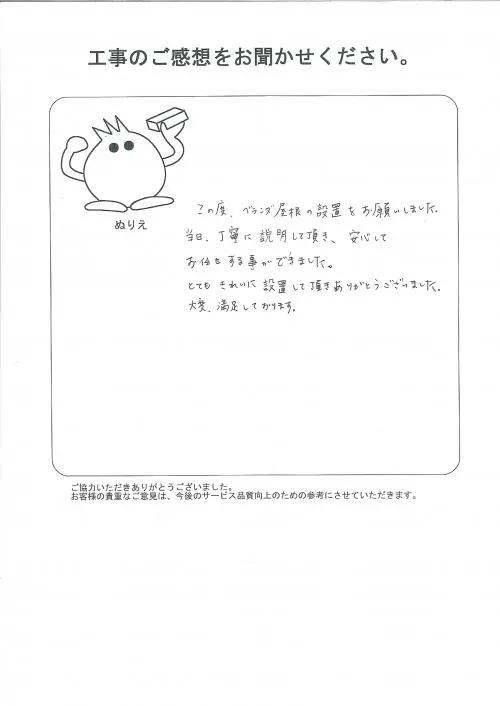 工事のご感想をお聞かせください。
ぬりえ
この度、ベランダ屋根の設置をお願いしました。
当日、丁寧に説明して頂き、安心して
お任せする事ができました。
とてもきれいに設置して頂きありがとうございました。
大変、満足しております。
ご協力いただきありがとうございました。
お客様の貴重なご意見は、今後のサービス品質向上のための参考にさせていただきます。